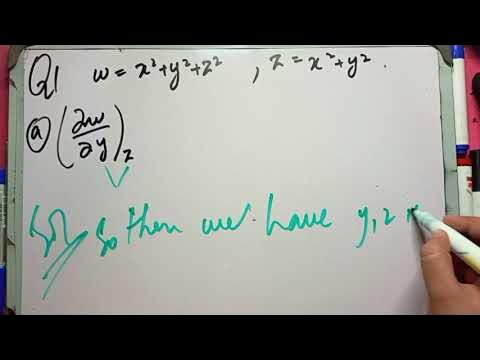 Q1 w = x²+y²+z² , z = x²+y² .
(a) (∂w/∂y)z
Sol So then we have y, z